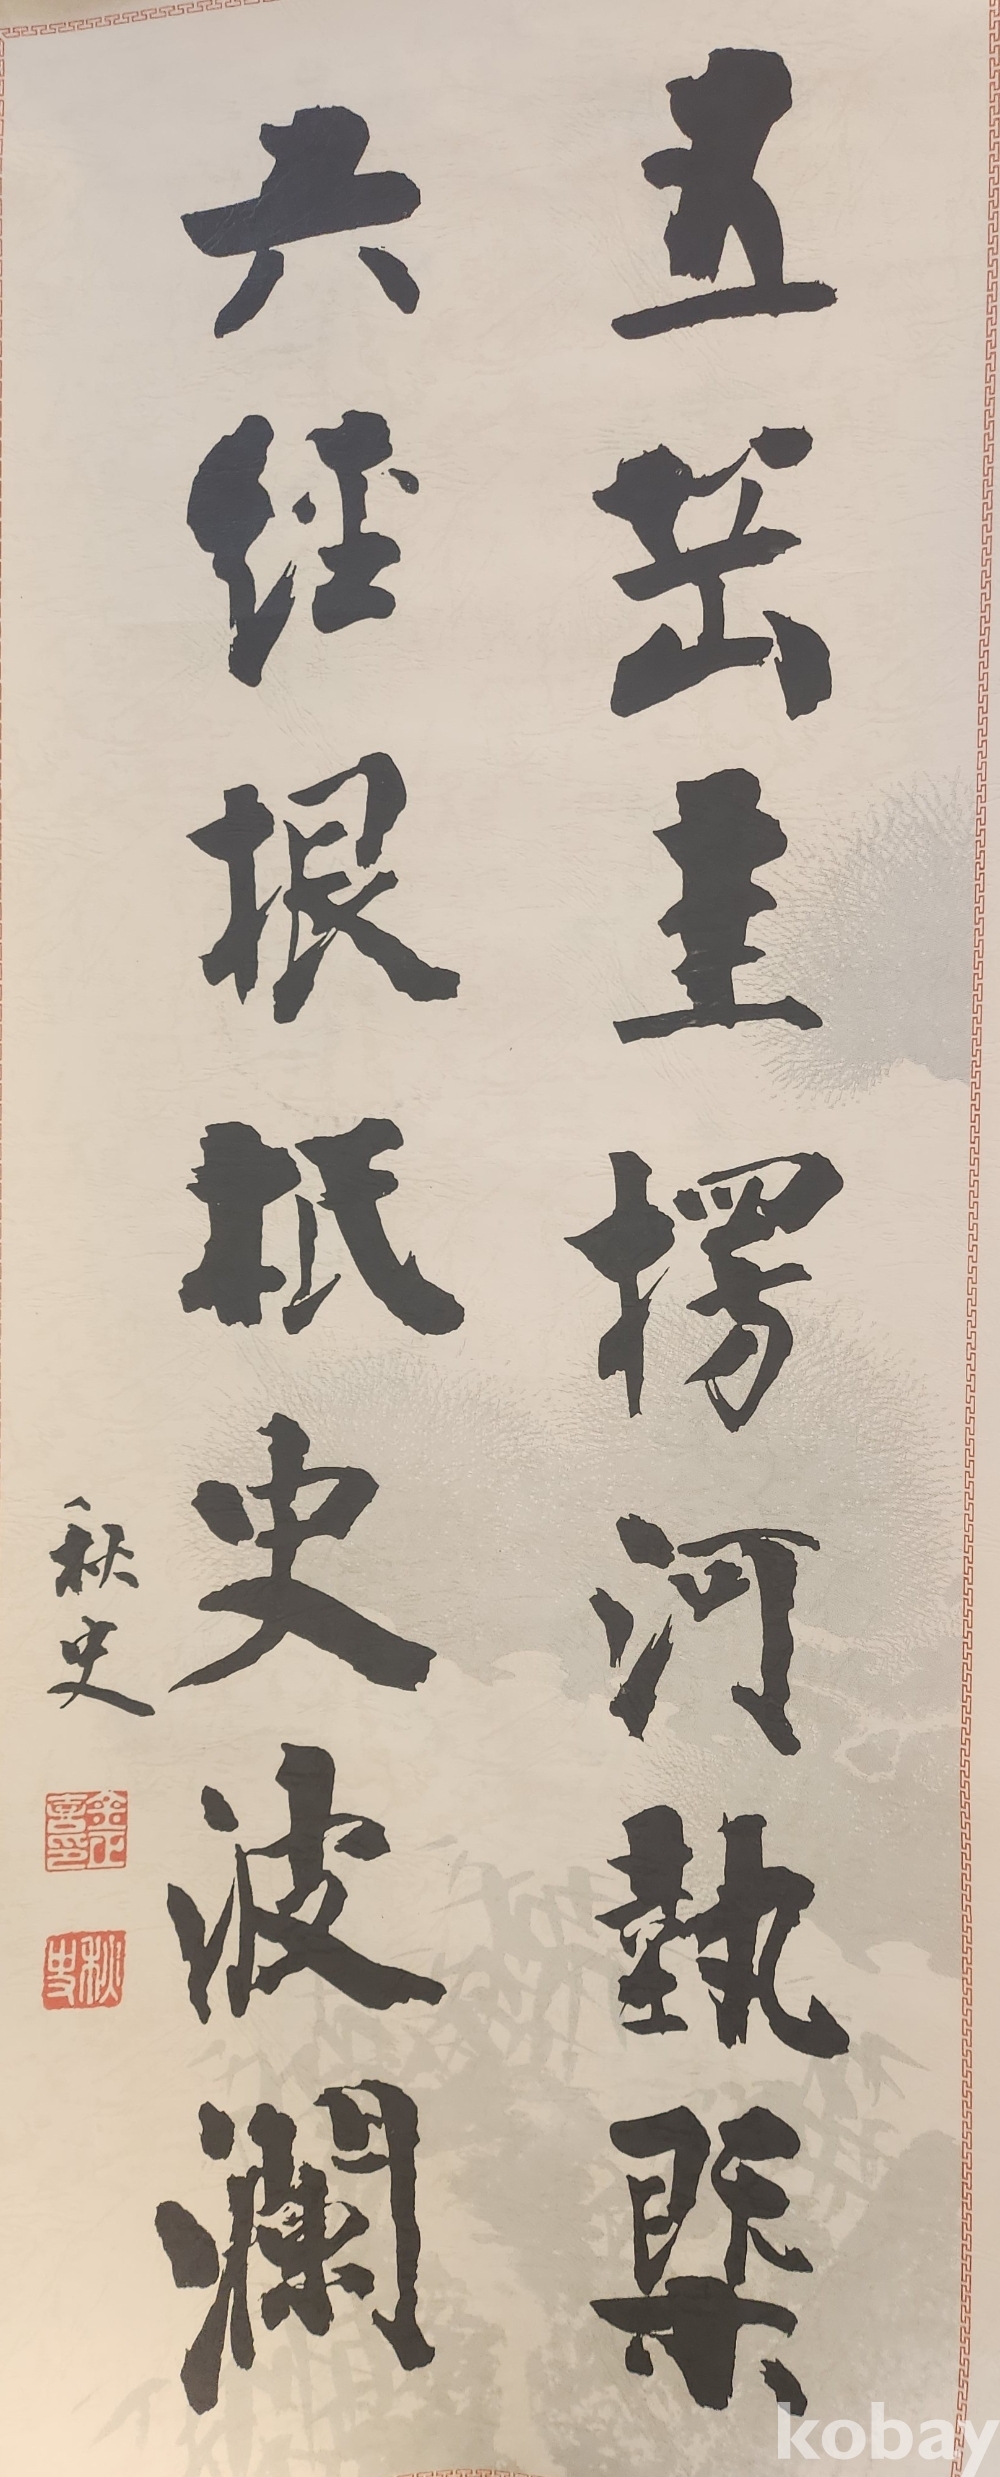 五岳圭楞河執槩
六經根柢史波瀾
秋史
金正喜印
秋史
kobay